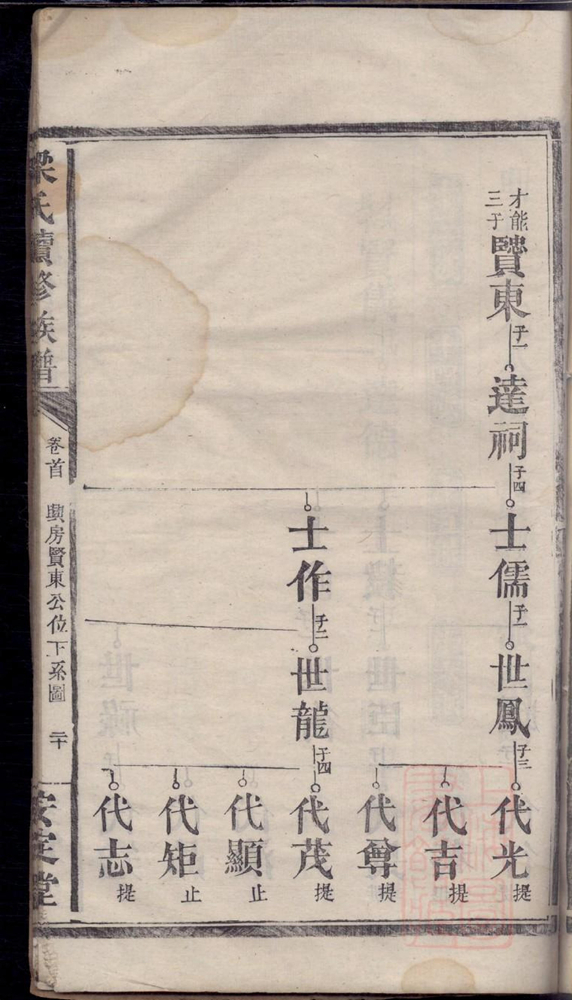 才能
三子
賢東
子一
達祠
子四
士儒
子一
世鳳
子三
代光
提
代吉
提
代尊
提
士作
子二
世龍
子四
代茂
提
代顯
止
代矩
止
代志
提
梁氏續修族譜
卷首
興房賢東公位下系圖
二十
安定堂